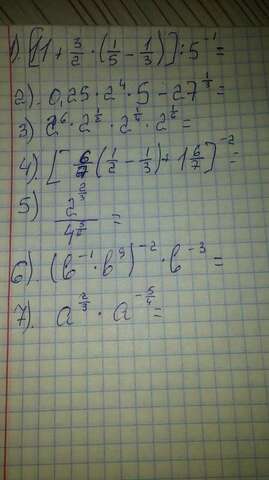 1). [11 + 3/2 · (1/5 − 1/3)] : 5^{-1} =
2). 0,25 · 2^4 · 5 − 27^{1/3} =
3) 2^6 · 2^{} · 2^{} · 2^{} =
4). [− 6/7 (1/2 − 1/3) + 1 6/7]^{-2} =
5) 2^{2/3} / 4^{} =
6). (b^{-1} · b^9)^{-2} · b^{-3} =
7). a^{2/3} · a^{-5/4} =